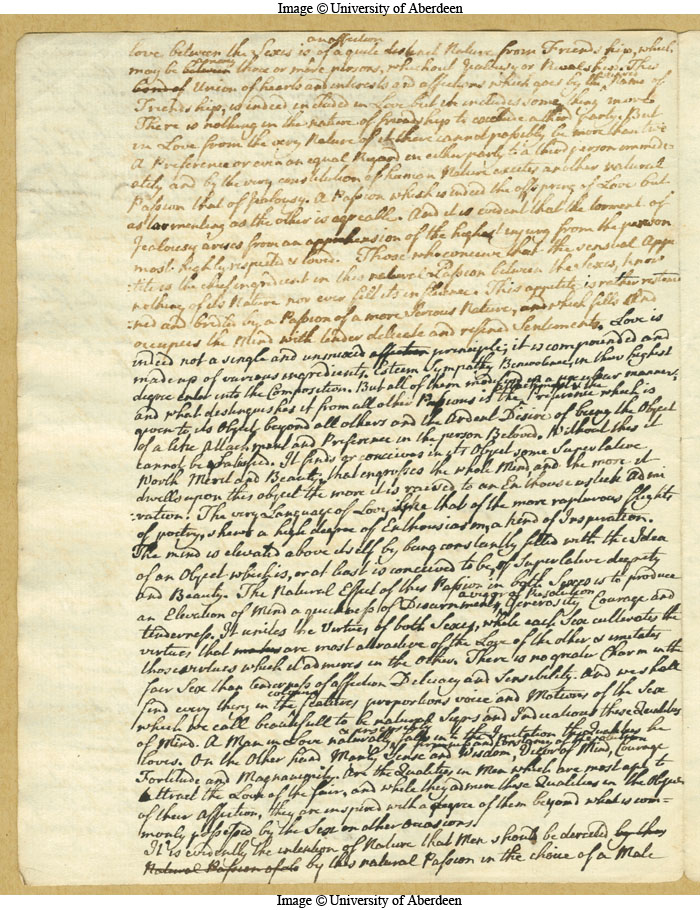 Image © University of Aberdeen
an affection
love between the Sexes is of a quite distinct Nature from Friendship, which
may be between many three or more persons, without Jealousy or Rivalship. This
Union of hearts and interests and affections which goes by the Name of
Friendship, is indeed included in Love but it includes some thing more
There is nothing in the nature of friendship to exclude a third party. But
in Love from the very Nature of it there cannot possibly be more than two
A Preference or even an equal Regard on either party to a third person immedi-
ately and by the very constitution of human Nature excites another natural
Passion that of Jealousy. A Passion which is indeed the offspring of Love but
as tormenting as the other is agreable. And it is evident that the torment of
Jealousy arises from an apprehension of the highest injury from the person
most highly respected & loved. Those who conceive that the sensual Appe
tite is the chief ingredient in this natural Passion between the Sexes, know
nothing of its Nature nor ever felt its influence. This appetite is rather restrai
ned and bridled by a Passion of a more serious Nature, and which fills and
occupies the Mind with tender delicate and refined Sentiments. Love is
indeed not a single and unmixed affection principle; it is compounded and
made up of various ingredients. Esteem Sympathy Benevolence, in their highest
degree enter into the Composition. But all of them in a peculiar manner,
and what distinguishes it from all other Passions is the Preference which is
given to its Object beyond all others and the Ardent Desire of being the Object
of a like Attachment and Preference in the person Beloved. Without this it
cannot be gratified. It finds or conceives in its Object some Superlative
Worth Merit and Beauty, that engrosses the whole Mind, and the more it
dwells upon this object the more it is raised to an Enthousiastick Admi
ration. The very Language of Love, like that of the more rapturous flights
of poetry, shews a high degree of Enthousiasm, a kind of Inspiration.
The mind is elevated above itself by being constantly filled with the Idea
of an Object which is, or at least is conceived to be, of Superlative dignity
and Beauty. The Natural Effect of this Passion in both Sexes is to produce
a vigor of Resolution
an Elevation of Mind a quickness of Discernment, Generosity Courage and
tenderness. It unites the Virtues of both Sexes, while each Sex cultivates the
virtues that are most attractive of the Love of the other & imitates
those virtues which it admires in the Other. There is no greater Charm in the
fair Sex than tenderness of affection Delicacy and Sensibility. And we shall
colours
find every thing in the features proportions voice and Motions of the Sex
which we call beautifull to be natural Signs and Indications of these Qualities
of Mind. A Man in Love naturally falls into the Imitation of the Qualities he
loves. On the Other hand Manly Sense and Wisdom, Vigor of Mind, Courage
Fortitude and Magnanimity are the Qualities in Men which are most apt to
attract the Love of the fair, and while they admire these Qualities in the Object
of their Affection, they are inspired with a degree of them beyond what is com-
monly possessed by the Sex on other occasions.
It is evidently the intention of Nature that Men should be directed by this
Natural Passion by this natural Passion in the choice of a Mate
Image © University of Aberdeen